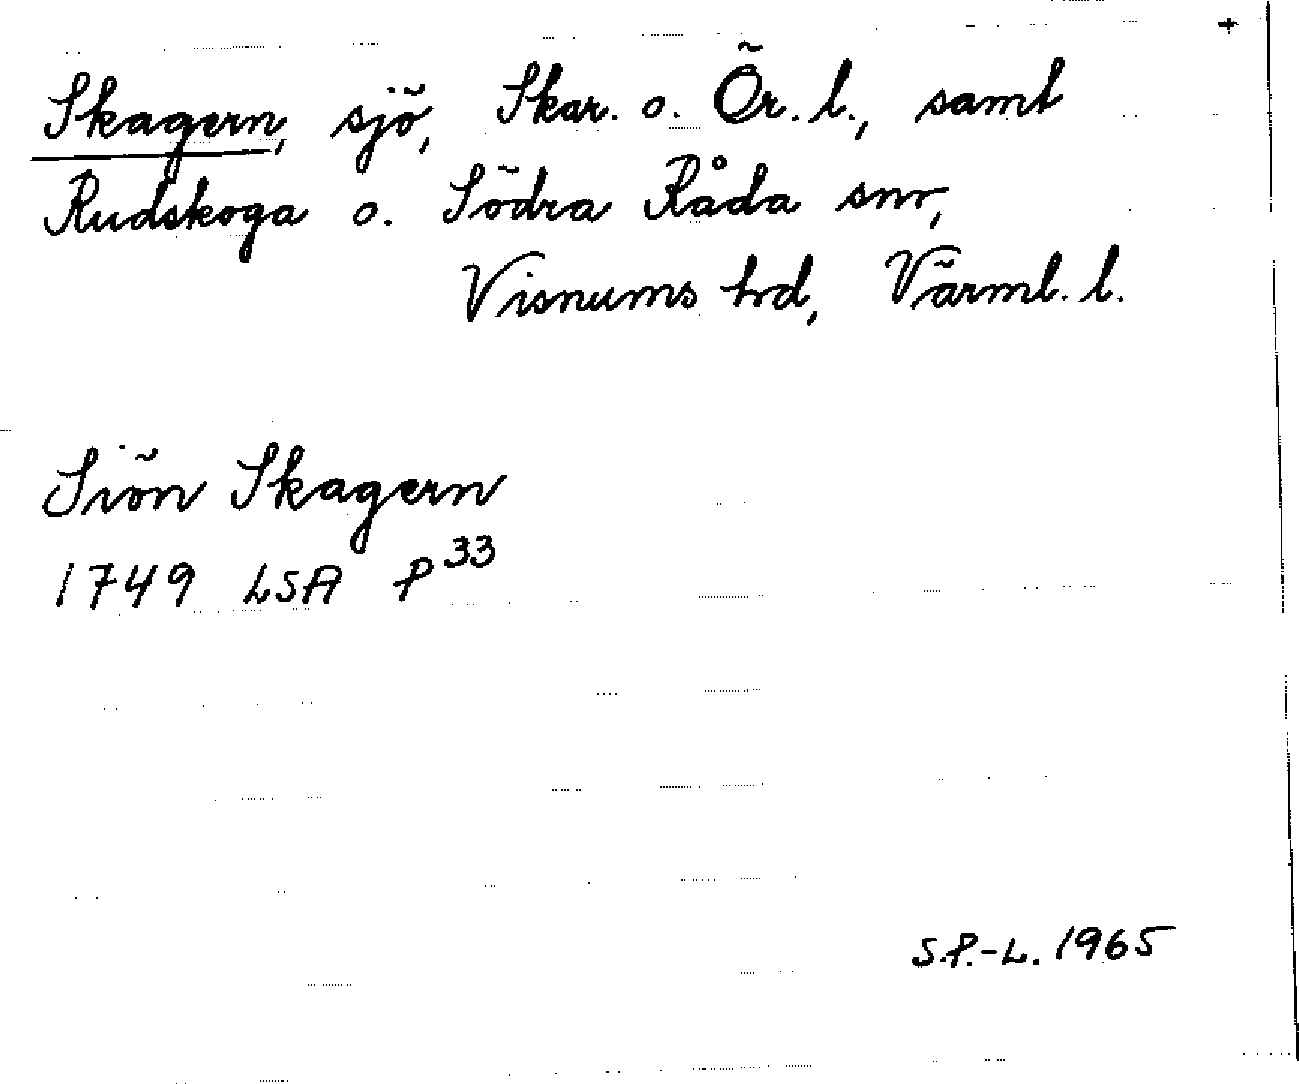 +
Skagern, sjö, Skar. o. Ör. l., samt
Rudskoga o. Södra Råda snr,
Visnums hd, Värml. l.
Siön Skagern
1749 LSA P 33
S.P.-L. 1965